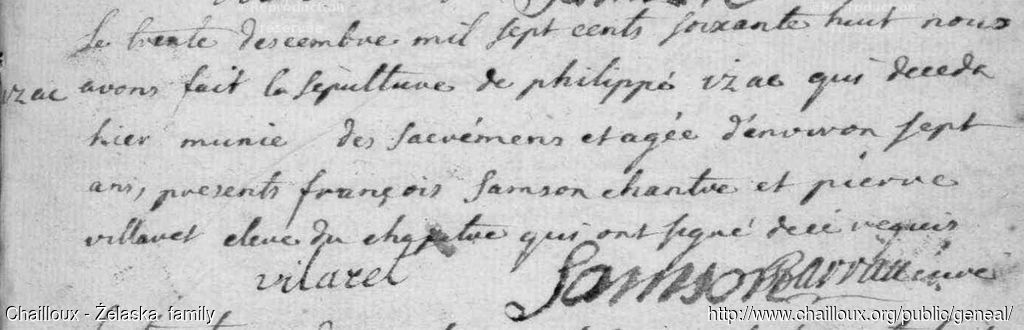 Le trente descembre mil sept cents soixante huit nous
izac avons fait la sepulture de philippe izac qui deceda
hier munie des sacrémens et agée d'environ sept
ans, presents françois Samson chantre et pierre
villaret eleve du chapitre qui ont signé de ce requis
vilarel Samson curé
Chailloux - Želaska family http://www.chailloux.org/public/geneal/